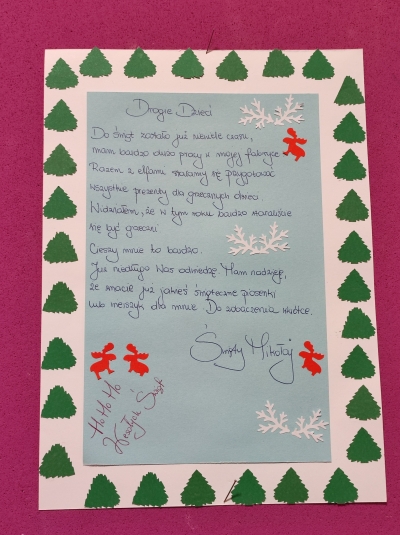 Drogie Dzieci
Do Świąt zostało już niewiele czasu,
mam bardzo dużo pracy w mojej fabryce
Razem z elfami staramy się przygotować
wszystkie prezenty dla grzecznych dzieci
Widziałem, że w tym roku bardzo staraliście
się być grzeczni
Cieszy mnie to bardzo.
Już niedługo Was odwiedzę Mam nadzieję,
że znacie już jakieś świąteczne piosenki
lub wierszyk dla mnie Do zobaczenia wkrótce.
Święty Mikołaj
Ho Ho Ho
Wesołych Świąt